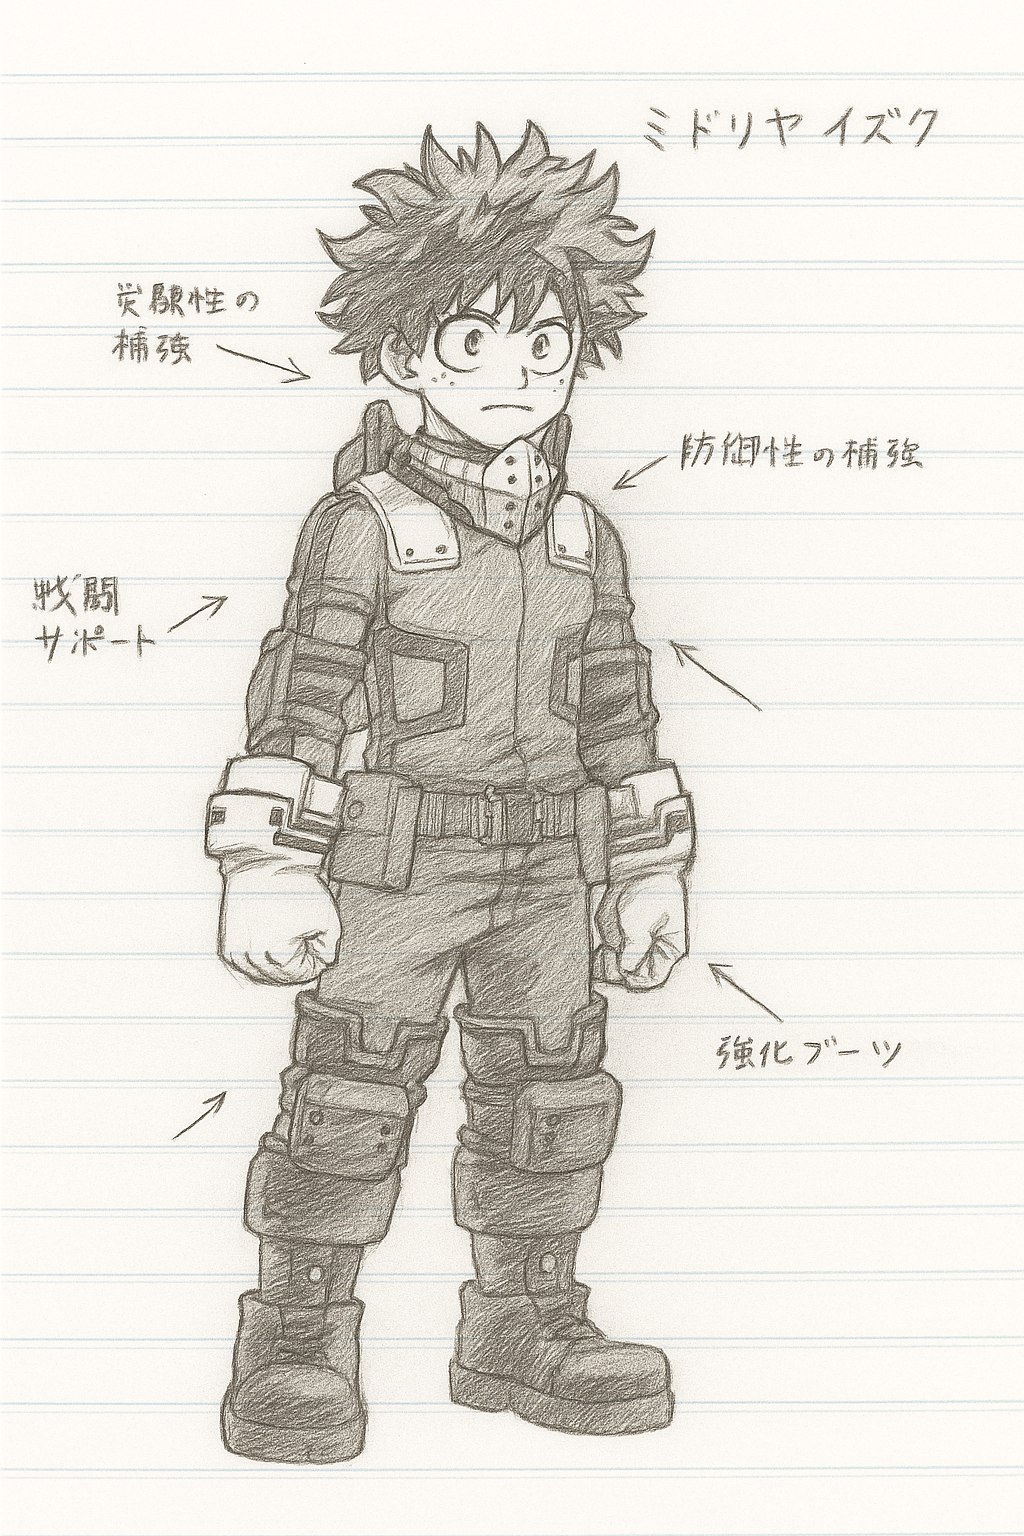 ミドリヤ イズク
性の
補強
防御性の補強
サポート
強化ブーツ